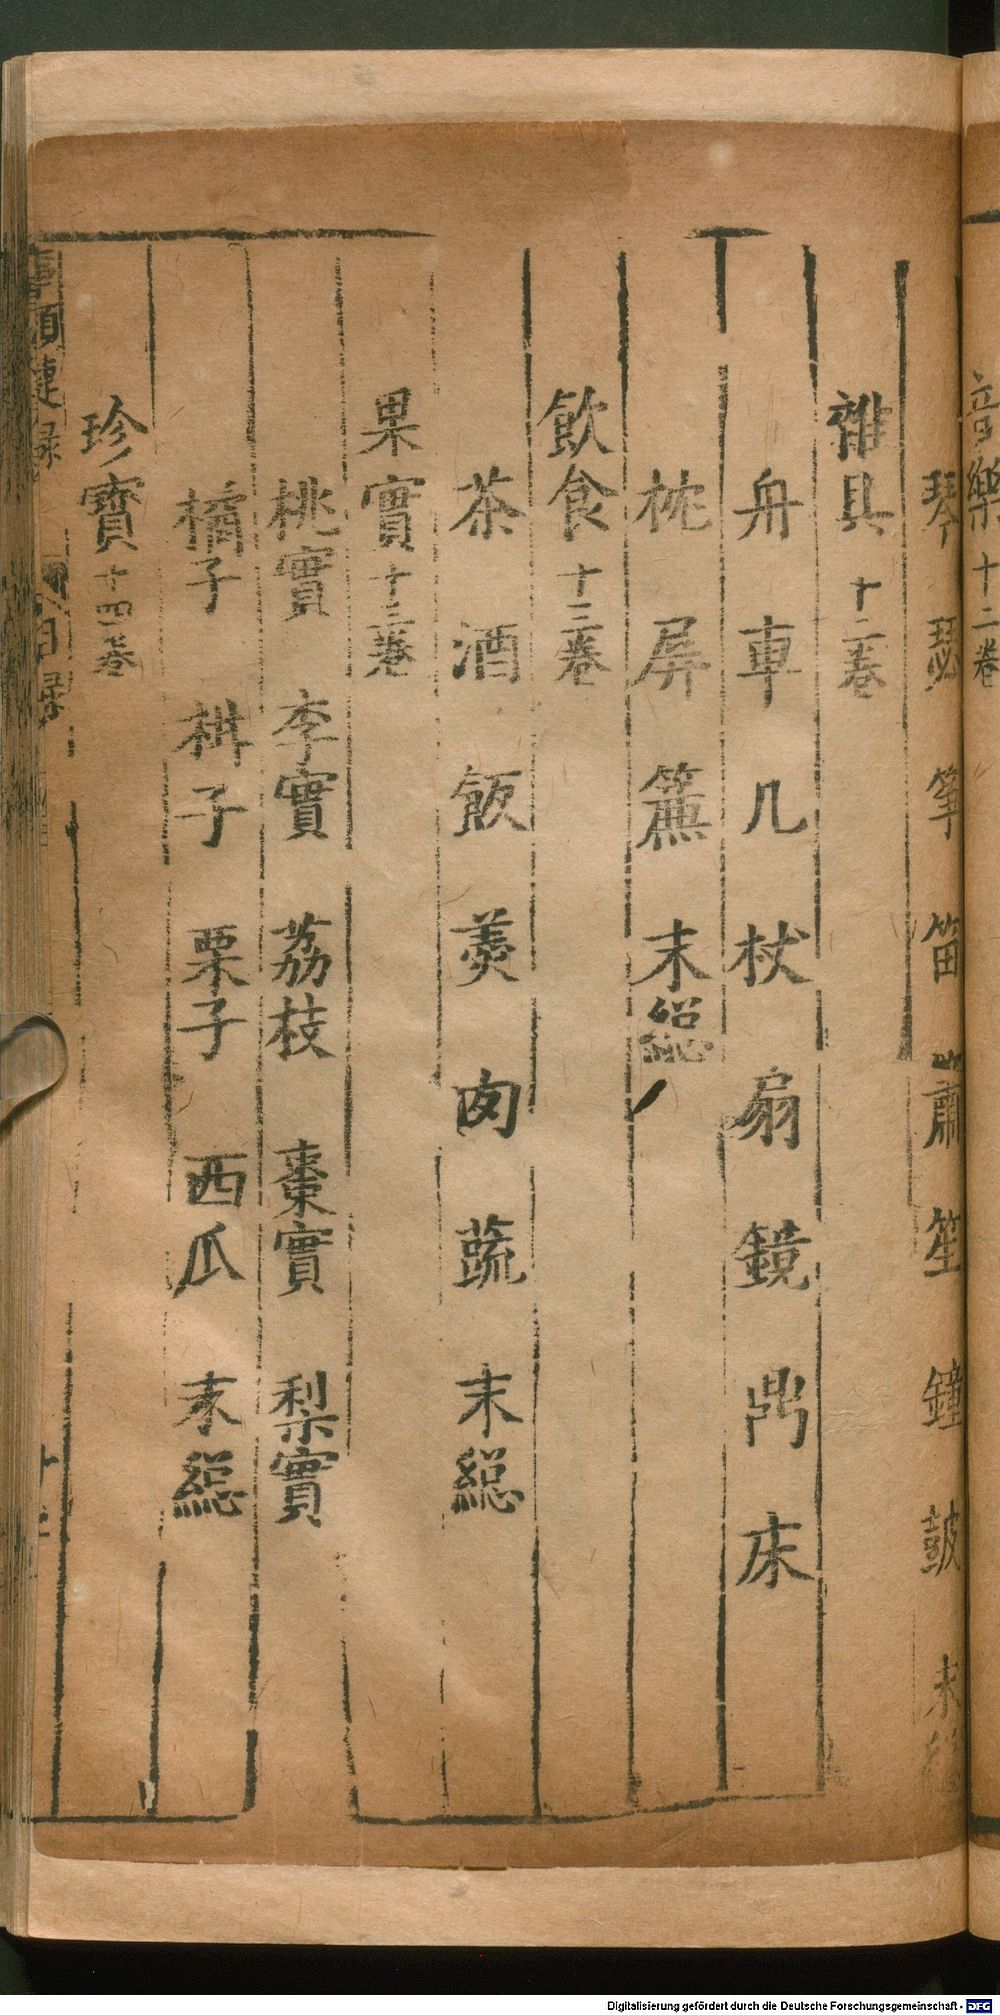 音樂十二卷
琴 瑟 筝 笛 簫 笙 鐘 鼓 末總
雜具十二卷
舟 車 几 杖 扇 鏡 鼎 床
枕 屏 簾 末總
飲食十三卷
茶 酒 飯 羹 肉 蔬 末總
果實十三卷
桃實 李實 荔枝 棗實 梨實
橘子 柑子 栗子 西瓜 末總
珍寶十四卷
目録
Digitalisierung gefördert durch die Deutsche Forschungsgemeinschaft - DFG